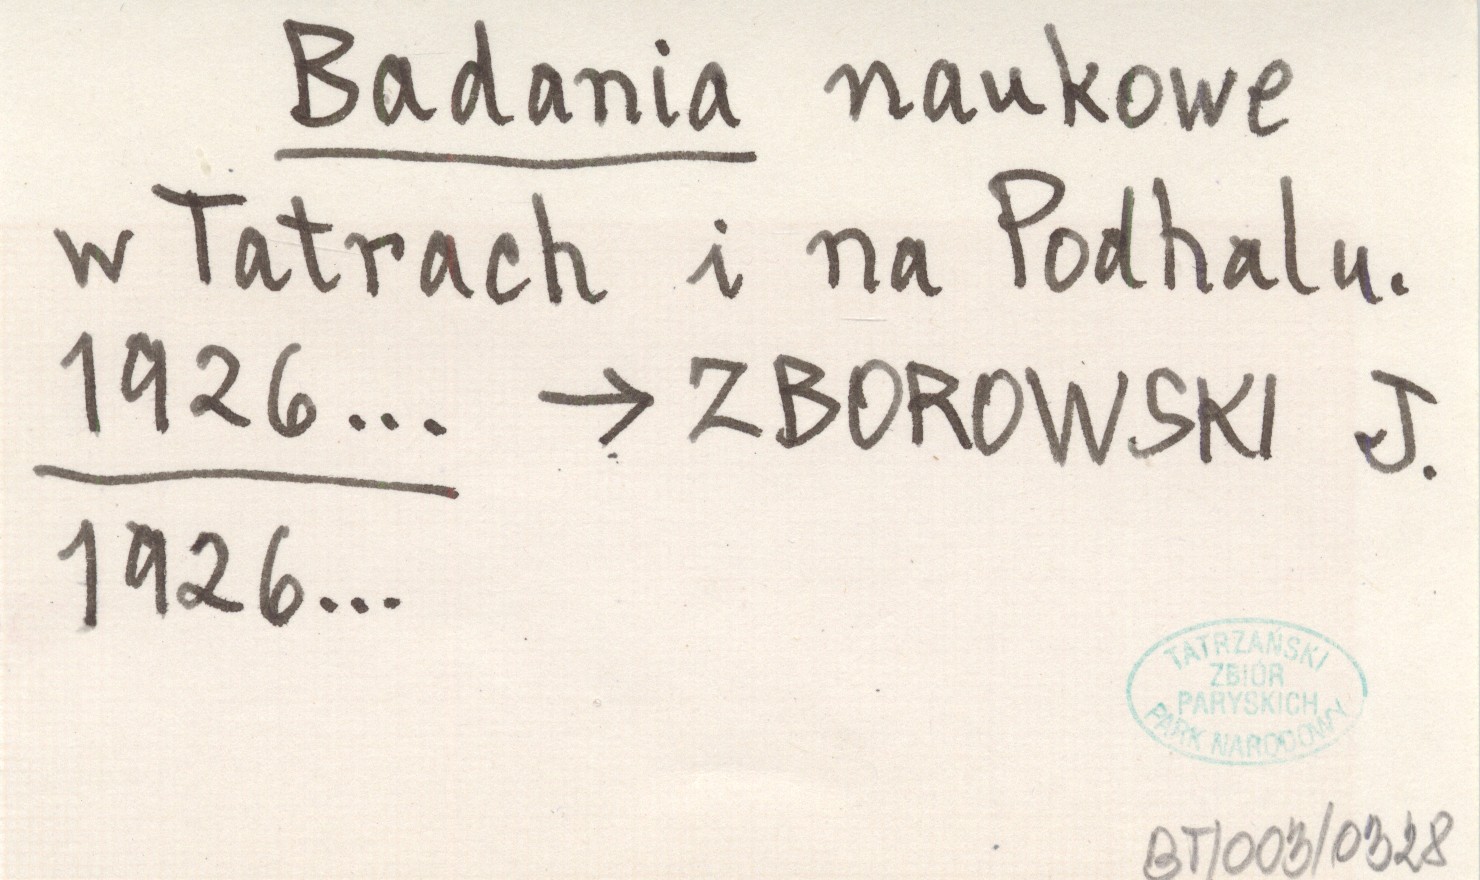 Badania naukowe
w Tatrach i na Podhalu.
1926... → ZBOROWSKI J.
1926...
TATRZAŃSKI
ZBIÓR
PARYSKICH
PARK NARODOWY
BT/003/0328